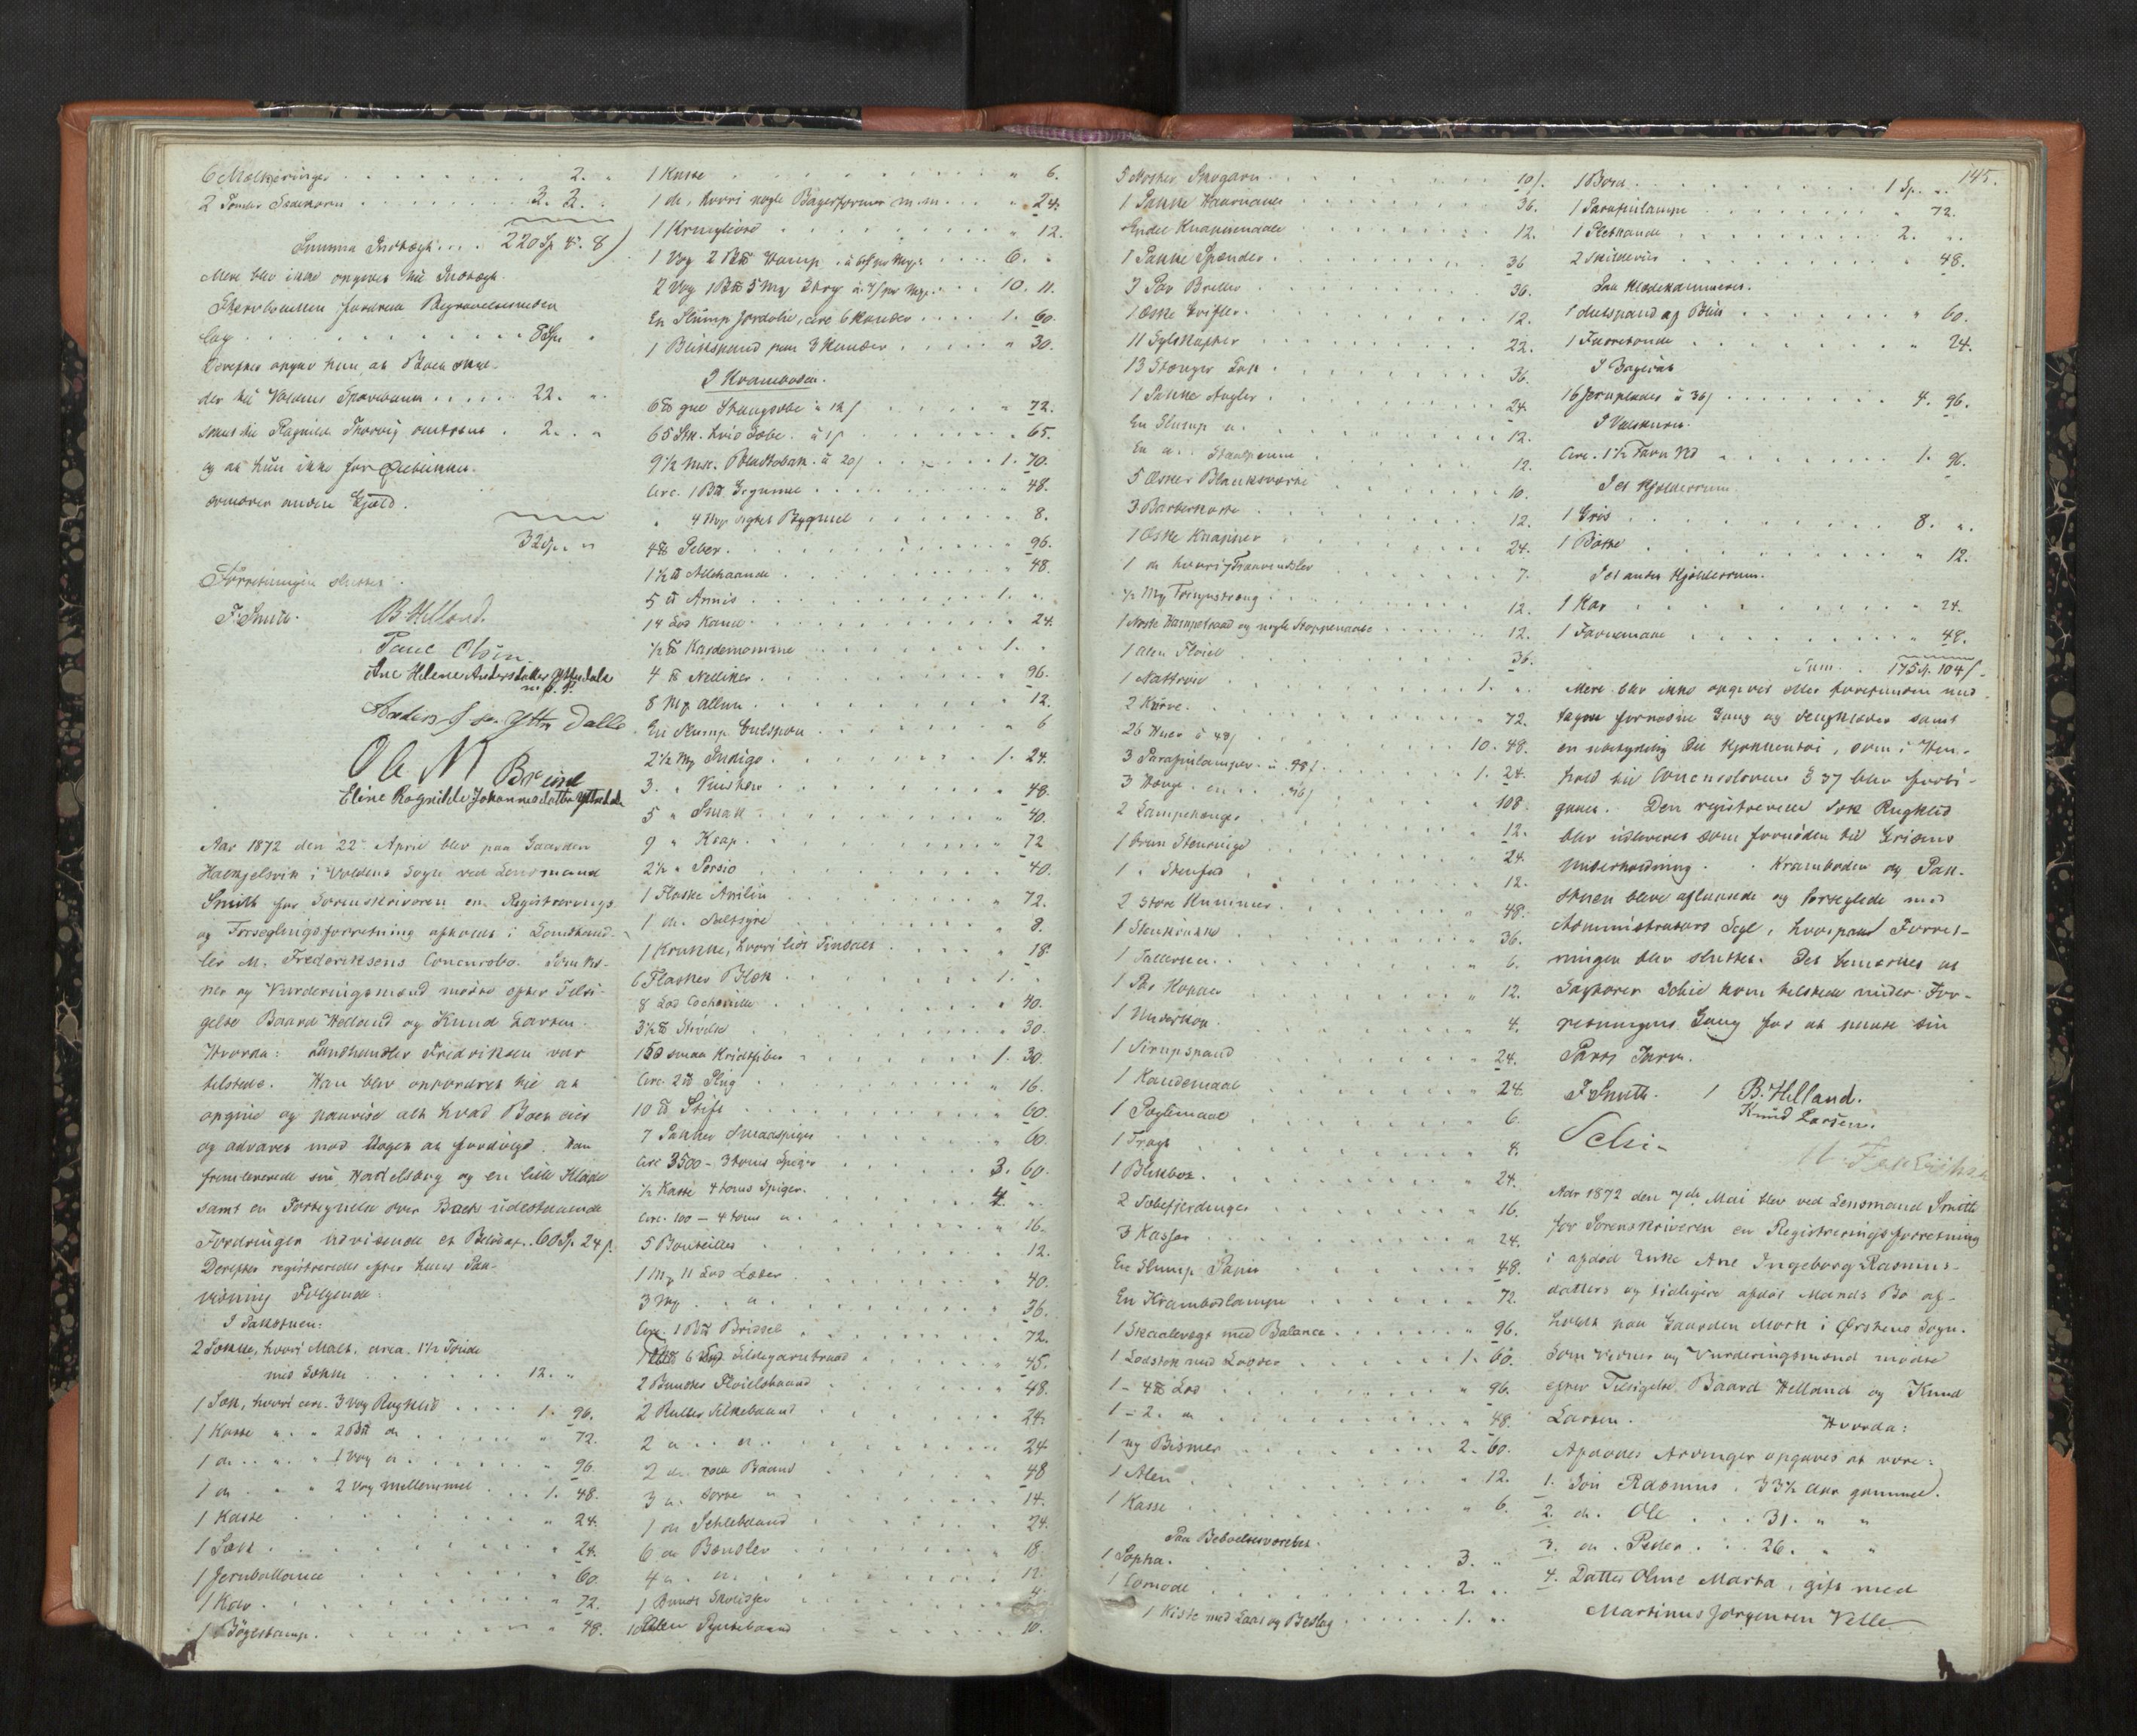 6 Melkeringer . . . 2. "
2 Tønder Sædekorn . . . 3. 2. "
Summa Indtægt . . . 220 Sp 4. 8
Mere blev ikke opgivet til Indtægt.
fordrede Begravelsesom
lag . . . 8 Sp "
Derefter opgav hun, at Boen skyl-
der til Voldens Sparebank . . . 22. "
samt til Ragnild omtrent . 2. "
og at hun ikke for Øieblikket
erindrer anden Gjæld.
32 Sp. "
Forretningen sluttet.
F. Smith. B. Helland.
Paul Olsen.
Ane Helene Andersdatter Ytredale
m. p. P.
Anders Ytre Dalle
Ole M Breird
Eline Ragnilde Johannesdatter Ytredale
Aar 1872 den 22de April blev paa Gaarden
i Voldens Sogn ved Lensmand
Smith for Sorenskriveren en Registrerings
og Forseglingsforretning afholdt i Landhand-
ler M. Frederiksens Concursbo. Som Vid-
ner og Vurderingsmænd mødte efter Tilsi-
gelse Baard Helland og Knud Larsen.
Hvorda: Landhandler Fredriksen var
tilstede. Han blev opfordret til at
opgive og paavise alt hvad Boet eier
og advaret mod Noget at fordølge. Han
fremleverede sin Handelsbog og en liden Kladde
samt en Fortegnelse over Boets udestaaende
Fordringer udvisende et Beløb af . 60 Sp. 24 s.
Derefter registreredes efter hans Paa-
visning Følgende:
I Pakstuen:
2 Sække, hvori Malt. circa. 1½ Tønde
med Sække . . . 12. "
1 Sæk, hvori circ. 3 Vog Rugmel . . . 1. 96.
1 Kasse " " 2 Bd do . . . " 72.
1 do . " " 1 Vog do . . . " 96.
1 do " " 2 Vog . . . 1. 48.
1 Kasse . . . " 24.
1 Sæk . . . " 24.
1 Jernballance . . . " 60.
1 Kar . . . " 72.
1 . . . " 48.
1 Kasse . . . " 6.
1 do, hvori nogle Bagerformer m. m. . . . " 24.
1 . . . " 12.
1 Vog 2 Bd Hamp . . . 6. "
2 Vog 1 Bd 5 Mrk Strie à 4 s pr Mrk . . . 10. 11.
En Slump Jordolie, circ 6 Kander . . . 1. 60.
1 Blikspand paa 3 Kander . . . " 30.
I Kramboden.
6 ℔ gul Stangsæbe à 12 s . . . " 72.
65 Stk. hvid Sæbe. à 1 s . . . " 65.
9½ Mrk. Bladtobak. à 20 s . . . 1. 70.
Circ. 1 Bd Brgrynne . . . " 48.
" 4 Mrk sigtet Bygmel . . . " 8.
4 ℔ Peber . . . " 96.
1½ ℔ Allehaande . . . " 48.
5 ℔ Annis . . . 1. "
14 Lod Kanel . . . " 24.
½ ℔ Kardemomme . . . 1. "
4 ℔ Nelliker . . . " 96.
8 Mrk Allun . . . " 12.
En Slump . . . " 6
2½ Mrk Indigo . . . 1. 24.
3. " . . . " 48.
5 " Smak . . . " 40.
9 " Krap . . . " 72
2½ " Persio . . . " 40.
1 Flaske Anilin . . . " 72.
1 do. Saltsyre . . . " 8.
1 Krukke, hvori lidt Tinsalt . . . " 18.
6 Flasker Blæk . . . 1. "
8 Lod Cochenille . . . " 40.
3½ ℔ Stivelse . . . " 30.
150 smaa Kridtpiber . . . 1. 30.
Circ. 2 ℔ Plug . . . " 16.
10 ℔ Stift . . . " 60.
7 Pakker Smaaspiger . . . " 60.
Circ 3500 – 3 toms Spiger . . . 3. 60.
½ Kasse 4 toms Spiger . . . 4. "
Circ. 100 – 4 toms do . . . " 16.
5 Bouteiller . . . " 12.
1 Mrk 11 Lod Læder . . . " 40.
3 Mrk . . do . . . " 36.
Circ 1 Bd . . . " 72.
1 Bd 6 Sildegarntraad . . . " 45.
2 Bundter Fløielsbaand . . . " 48.
2 Ruller Silkebaand . . . " 24.
2 do . . do . . . " 24
2 do . røde Baand . . . " 48
3 do . sorte do . . . " 14.
1 do . . . " 24.
6 do Bændler . . . " 18
4 do . do . . . " 12.
1 Bundt Skolidser . . . " 4.
10 Alen Pyntebaand . . . " 10.
145.
5 Nøster Skogarn . . . 10 s.
1 Pakke Haarnaale . . . 36.
Endel Knappenaale . . . 12.
1 Pakke Spænder . . . 36
3 Par Briller . . . 36.
1 Æske Grifler . . . 12.
11 Sylskapter . . . 22.
13 Stænger Lak . . . 36.
1 Pakke Angler . . . 24.
En Slump do . . . 12.
En do . Staalpenne . . . 12.
5 Æsker Blanksværte . . . 10.
3 Barberkoste . . . 12.
1 Æske Knapper . . . 24.
1 do hvori . . . 7.
½ Mrk . . . 12.
1 Nøste Hampetraad og nogle Stoppenaale . . . 12.
1 Alen Fløiel . . . 36.
1 . . . 1. "
2 Kurve . . . " 72.
26 Huer à 48 s . . . 10. 48.
3 Parafinlamper . à . 48 s . . . 1. 24.
3 Hænge do . . 36 s . . . 108.
2 Lampehænger . . . 12.
1 brun Stenringe . . . 24.
1 " Stenfad . . . 12.
2 store Kummer . . . 48.
1 Stenkrukke . . . 36.
1 Tallerken . . . 6.
1 Par Kopper . . . " 12.
1 Underkop . . . 4.
1 Sirupspand . . . " 24.
1 Kandemaal . . . " 24.
1 Pæglemaal . . . 6.
1 Tragt . . . 4.
1 Blikbox . . . " 24.
2 Sæbefjerdinger . . . " 16.
3 Kasser . . . " 24.
En Slump Papir . . . " 48.
En Krambodlampe . . . " 72.
1 Skaalevægt med Balance . . . " 96.
1 Lodstok med Lodder . . . 1. 60.
1 – 4 ℔ Lod . . . " 96.
1 – 2. do . . . " 48.
1 ny Bismer . . . 2. 60.
1 Alen . . . " 12.
1 Kasse . . . " 6.
Paa Beboelsesværelset.
1 Sopha . . . 3. "
1 Comode . . . 2. "
1 Kiste med Laas og Beslag . . . 1. "
1 Bord . . . 1 Sp. "
1 Parafinlampe . . . " 72.
1 . . . 2. "
2 Skilderier . . . " 48.
Paa Klædekammeret.
1 . . . af Blik . . . " 60.
1 . . . " 24.
I Bageriet
16 Jernplader à 36 s . . . 4. 96.
I
Circ. 1½ Favn Ved . . . 1. 96.
I et Kjelderrum.
1 Gris . . . 8. "
1 Bøtte . . . " 12.
I et andet Kjelderrum.
1 Kar . . . " 24.
1 . . . " 48.
Sum . . 175 Sp. 104 s.
Mere blev ikke opgivet eller forefunden und-
tagen fornødne Gang og Sengklæder samt
en ubetydelig Del Kjøkkentøi, som i Hen-
hold til Concurslovens § 37 blev forbi-
gaaet. Den registrerede Sæk Rugmel
blev udleveret som fornøden til Grisens
Underholdning. Kramboden og Pak-
stuen bleve aflaasede og forseglede med
Administrators Segl, hvorpaa Forret-
ningen blev sluttet. Det bemærkes at
Sagfører Schie kom tilstede under For-
retningens Gang for at paase sin
Parts Tarv.
F. Smith. / B. Helland.
Knud Larsen.
Schie –
M. Fredriksen
Aar 1872 den 7de Mai blev ved Lensmand Smith
for Sorenskriveren en Registreringsforretning
i afdød Enke Ane Ingeborg Rasmus-
datters og tidligere afdøde Mands Bo af-
holdt paa Gaarden Mork i Ørstens Sogn.
Som Vidner og Vurderingsmænd mødte
efter Tilsigelse Baard Helland og Knud
Larsen. Hvorda:
Afdødes Arvinger opgaves at være:
1. Søn Rasmus . 33½ Aar gammel.
2. do. Ole . . . 31. " "
3. do . Peder . . 26. " "
4. Datter Oline Marta, gift med
Martinus Jørgensen Velle